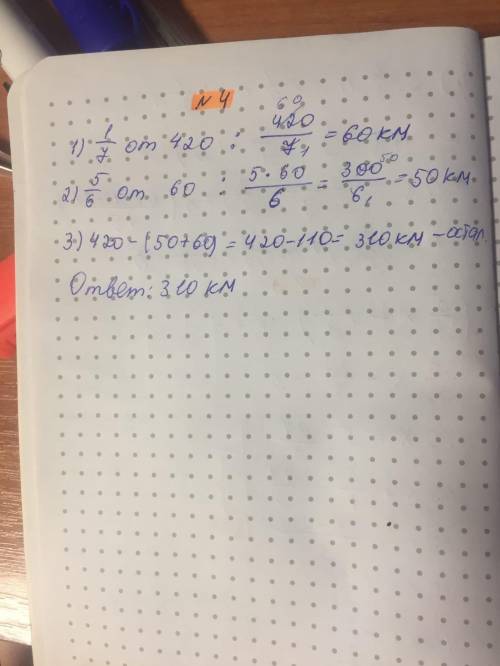 N 4
1) 1/7 от 420 : 420/7 = 60 км 60 1
2) 5/6 от 60 : 5·60/6 = 300/6 = 50 км 50 1
3) 420 - (50+60) = 420-110 = 310 км - остал.
Ответ: 310 км